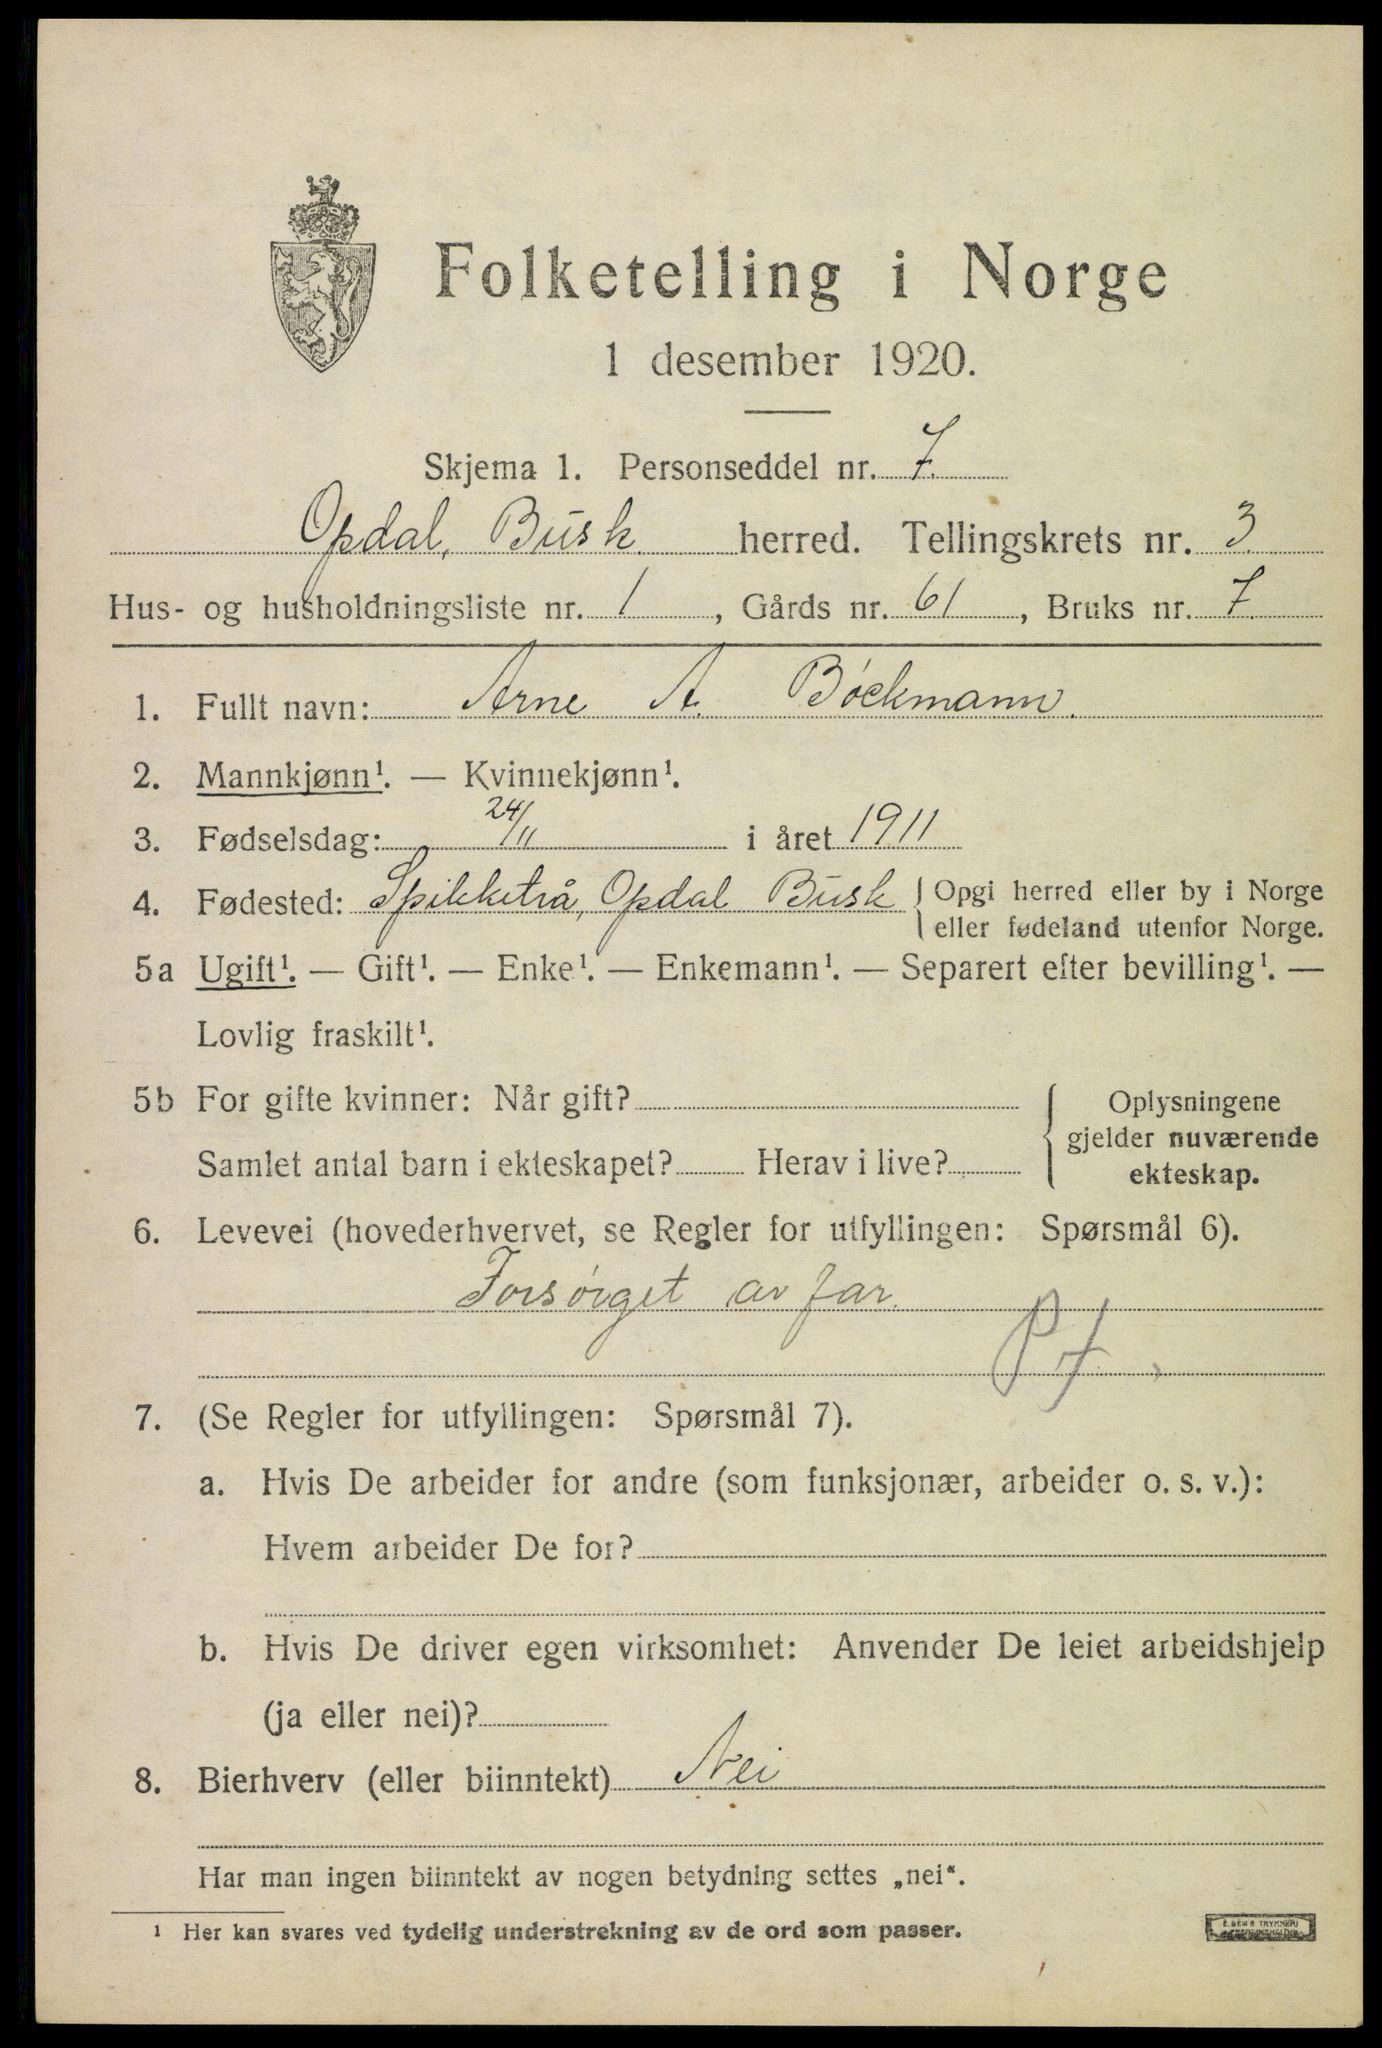 Folketelling i Norge
1 desember 1920.
Skjema 1. Personseddel nr. 7.
Opdal, Busk. herred. Tellingskrets nr. 3.
Hus- og husholdningsliste nr. 1, Gårds nr. 61, Bruks nr. 7.
1. Fullt navn: Arne A. Böckmann.
2. Mannkjønn¹. — Kvinnekjønn¹.
3. Fødselsdag: 24/11 i året 1911
4. Fødested: Spikketrå, Opdal Busk { Opgi herred eller by i Norge
eller fødeland utenfor Norge.
5a Ugift¹. — Gift¹. — Enke¹. — Enkemann¹. — Separert efter bevilling¹. —
Lovlig fraskilt¹.
5b For gifte kvinner: Når gift? { Oplysningene
gjelder nuværende
Samlet antal barn i ekteskapet? Herav i live? ekteskap.
6. Levevei (hovederhvervet, se Regler for utfyllingen: Spørsmål 6).
Forsörget av far.
Pf
7. (Se Regler for utfyllingen: Spørsmål 7).
a. Hvis De arbeider for andre (som funksjonær, arbeider o. s. v.):
Hvem arbeider De for?
b. Hvis De driver egen virksomhet: Anvender De leiet arbeidshjelp
(ja eller nei)?
8. Bierhverv (eller biinntekt) Nei
Har man ingen biinntekt av nogen betydning settes „nei“.
¹ Her kan svares ved tydelig understrekning av de ord som passer.